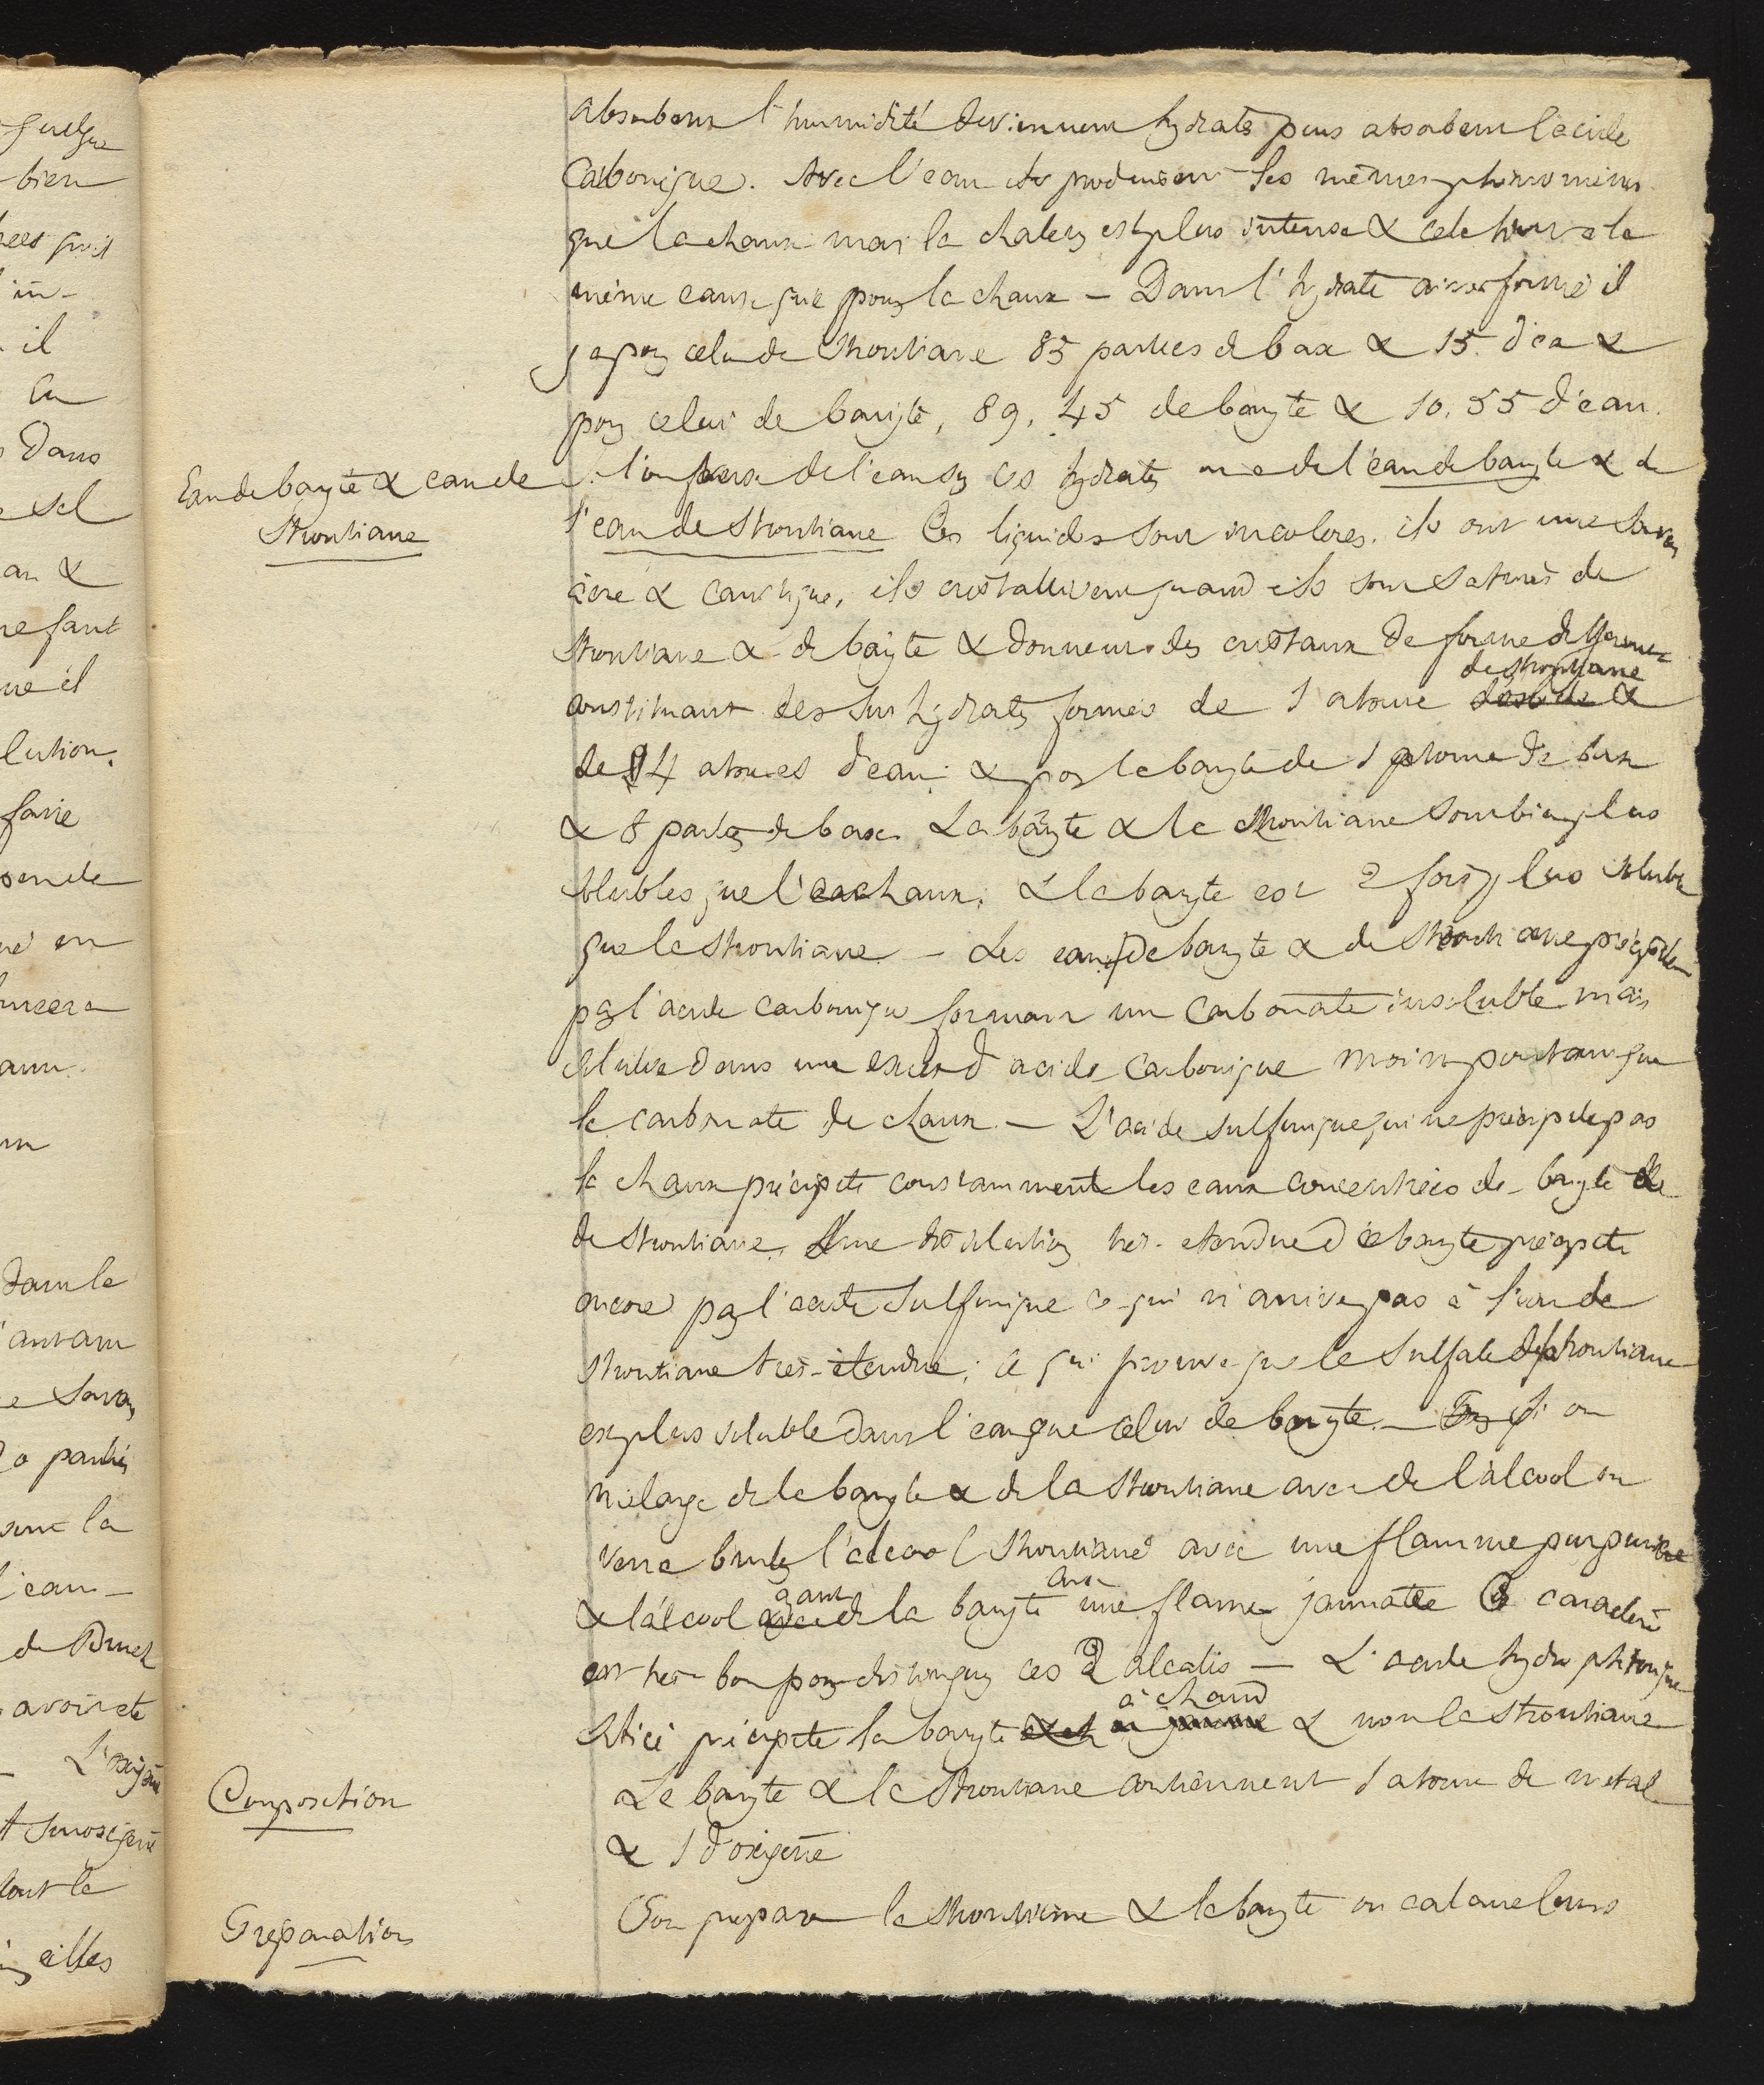 absorbent l'humidité deviennent hydratés puis absorbent l'acide
Carbonique. Avec l'eau ils produisent les mêmes phénomènes
que la chaux mais la chaleur est plus intense & cela tient a la
même cause que pour la chaux — Dans l'hydrate ainsi formé il
y a pour celui de Strontiane 85 parties de base & 15. d'eau &
pour celui de baryte, 89, 45 de baryte & 10,55 d'eau.
Eau de baryte & eau de
Strontiane
Si l'on verse de l'eau sur ces hydrates on a de l'eau de baryte & de
l'eau de Strontiane Ces liquides sont incolores. ils ont une saveur
âcre & caustique, ils cristallisent quand ils sont saturés de
Strontiane & de baryte & donnent des cristaux de forme différente
constituant des sur hydrates formés de 1 atome de strontiane &
de 14 atomes d'eau & pour la baryte de 1 atome de base
& 8 parties de base. La baryte & la Strontiane sont bien plus
solubles que la chaux. & la baryte est 2 fois plus soluble
que la Strontiane — Les eaux de baryte & de Strontiane précipitent
par l'acide carbonique formant un Carbonate insoluble mais
soluble dans un excès d'acide carbonique moins pourtant que
le carbonate de chaux. — L'acide sulfurique qui ne précipite pas
la chaux précipite constamment les eaux concentrées de baryte &
de Strontiane. Une dissolution très-étendue de baryte précipite
encore par l'acide Sulfurique ce qui n'arrive pas à l'eau de
Strontiane très-étendue; ce qui prouve que le Sulfate de strontiane
est plus soluble dans l'eau que celui de baryte. — Si on
mélange de la baryte & de la Strontiane avec de l'alcool on
verra bruler l'alcool Strontiané avec une flamme purpurine
& l'alcool ayant de la baryte avec une flamme jaunatre Ce caractère
est très bon pour distinguer ces 2 alcalis — L'acide hydro phtorique
silicé précipite la baryte à chaud & non la Strontiane
Composition
La baryte & la Strontiane contiennent 1 atome de metal
& 1 d'oxigène
Préparation
On prepare la Strontiane & la baryte en calcinant leurs